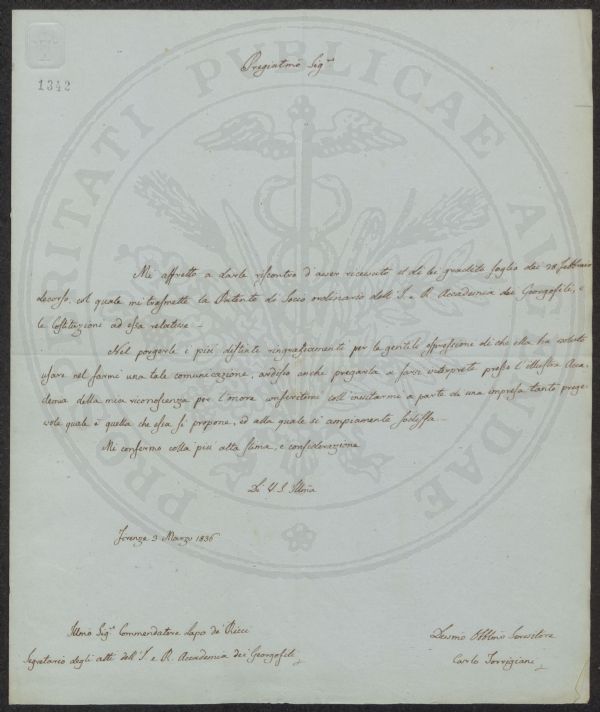 1342
Pregiatmo Sigre
PROSPERITATI PVBLICAE AVGENDAE
Mi affretto a darle riscontro d'aver ricevuto il di Lei gradito foglio dei 28 Febbraio
decorso, col quale mi trasmette la Patente di Socio ordinario dell'I. e R. Accademia dei Georgofili, e
le Costituzioni ad essa relative.
Nel porgerle i più distinti ringraziamenti per le gentili espressioni di che ella ha voluto
usare nel farmi una tale comunicazione, ardisco anche pregarla a farsi interprete presso l'illustre Acca-
demia della mia riconoscenza per l'onore conferitomi coll'invitarmi a parte di una impresa tanto prege-
vole quale è quella che essa si propone, ed alla quale si ampiamente sodisfa.
Mi confermo colla più alta stima, e considerazione
Di V. S. Illma
Firenze 3 Marzo 1836
Illmo Sigre Commendatore Lapo de' Ricci
Segretario degli atti dell'I. e R. Accademia dei Georgofili
Devmo Obblmo Servitore
Carlo Torrigiani